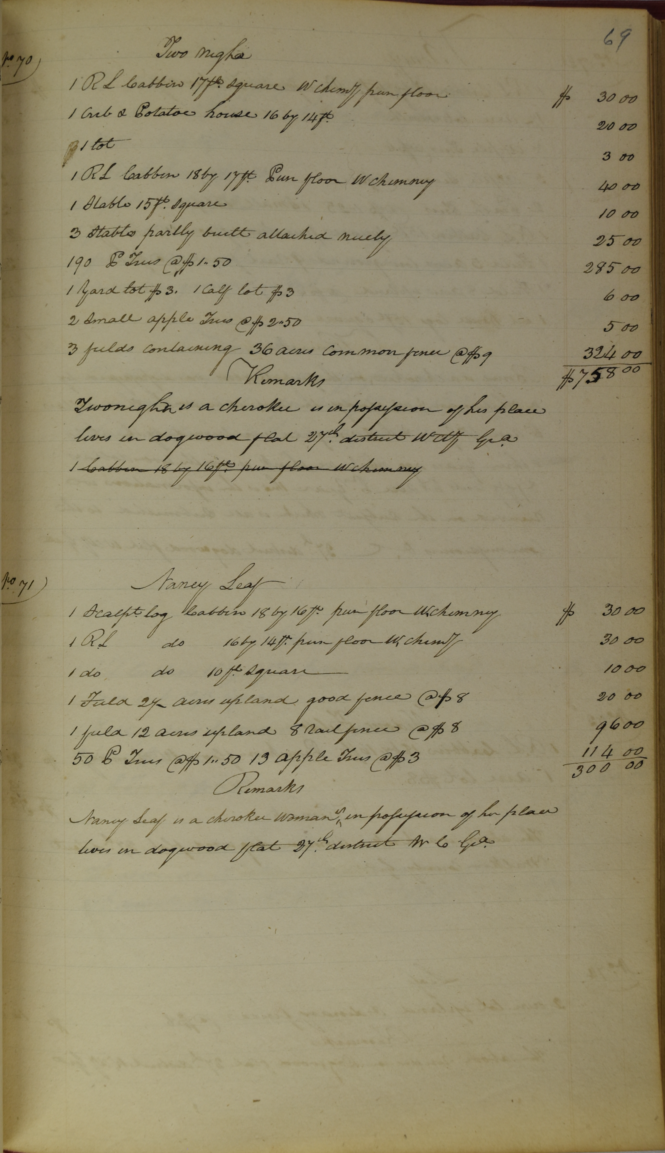 69
No. 70) Two nigha
1 R L Cabbin 17 ft. Square W chimy pun floor $ 30 00
1 Crib & Potatoe house 16 by 14 ft. 20 00
1 lot 3 00
1 R L Cabbin 18 by 17 ft. Pun floor W chimney 40 00
1 Stable 15 ft. Square 10 00
3 Stables partly built attached nicely 25 00
190 P Trees @ $1.50 285 00
1 Yard lot $3. 1 Calf lot $3 6 00
2 Small apple Trees @ $2.50 5 00
3 fields containing 36 acres common fence @ $9 324 00
Remarks $758 00
Twonigha is a cherokee is in possession of his place
lives in dogwood flat 27th. district Ga.
1 Cabbin 18 by 16 ft. pun floor W chimney
No. 71) Nancy Leaf
1 Scalpt log Cabbin 18 by 16 ft. pun floor W chimney $ 30 00
1 R L do 16 by 14 ft. pun floor W chimy 30 00
1 do do 10 ft Square 10 00
1 Field acres upland good fence @ $8 20 00
1 field 12 acres upland 8 rail fence @ $8 96 00
50 P Trees @ $1.50 13 apple Trees @ $3 114 00
Remarks 300 00
Nancy Leaf is a cherokee woman is in possession of her place
lives in dogwood flat 27th. district W C Ga.